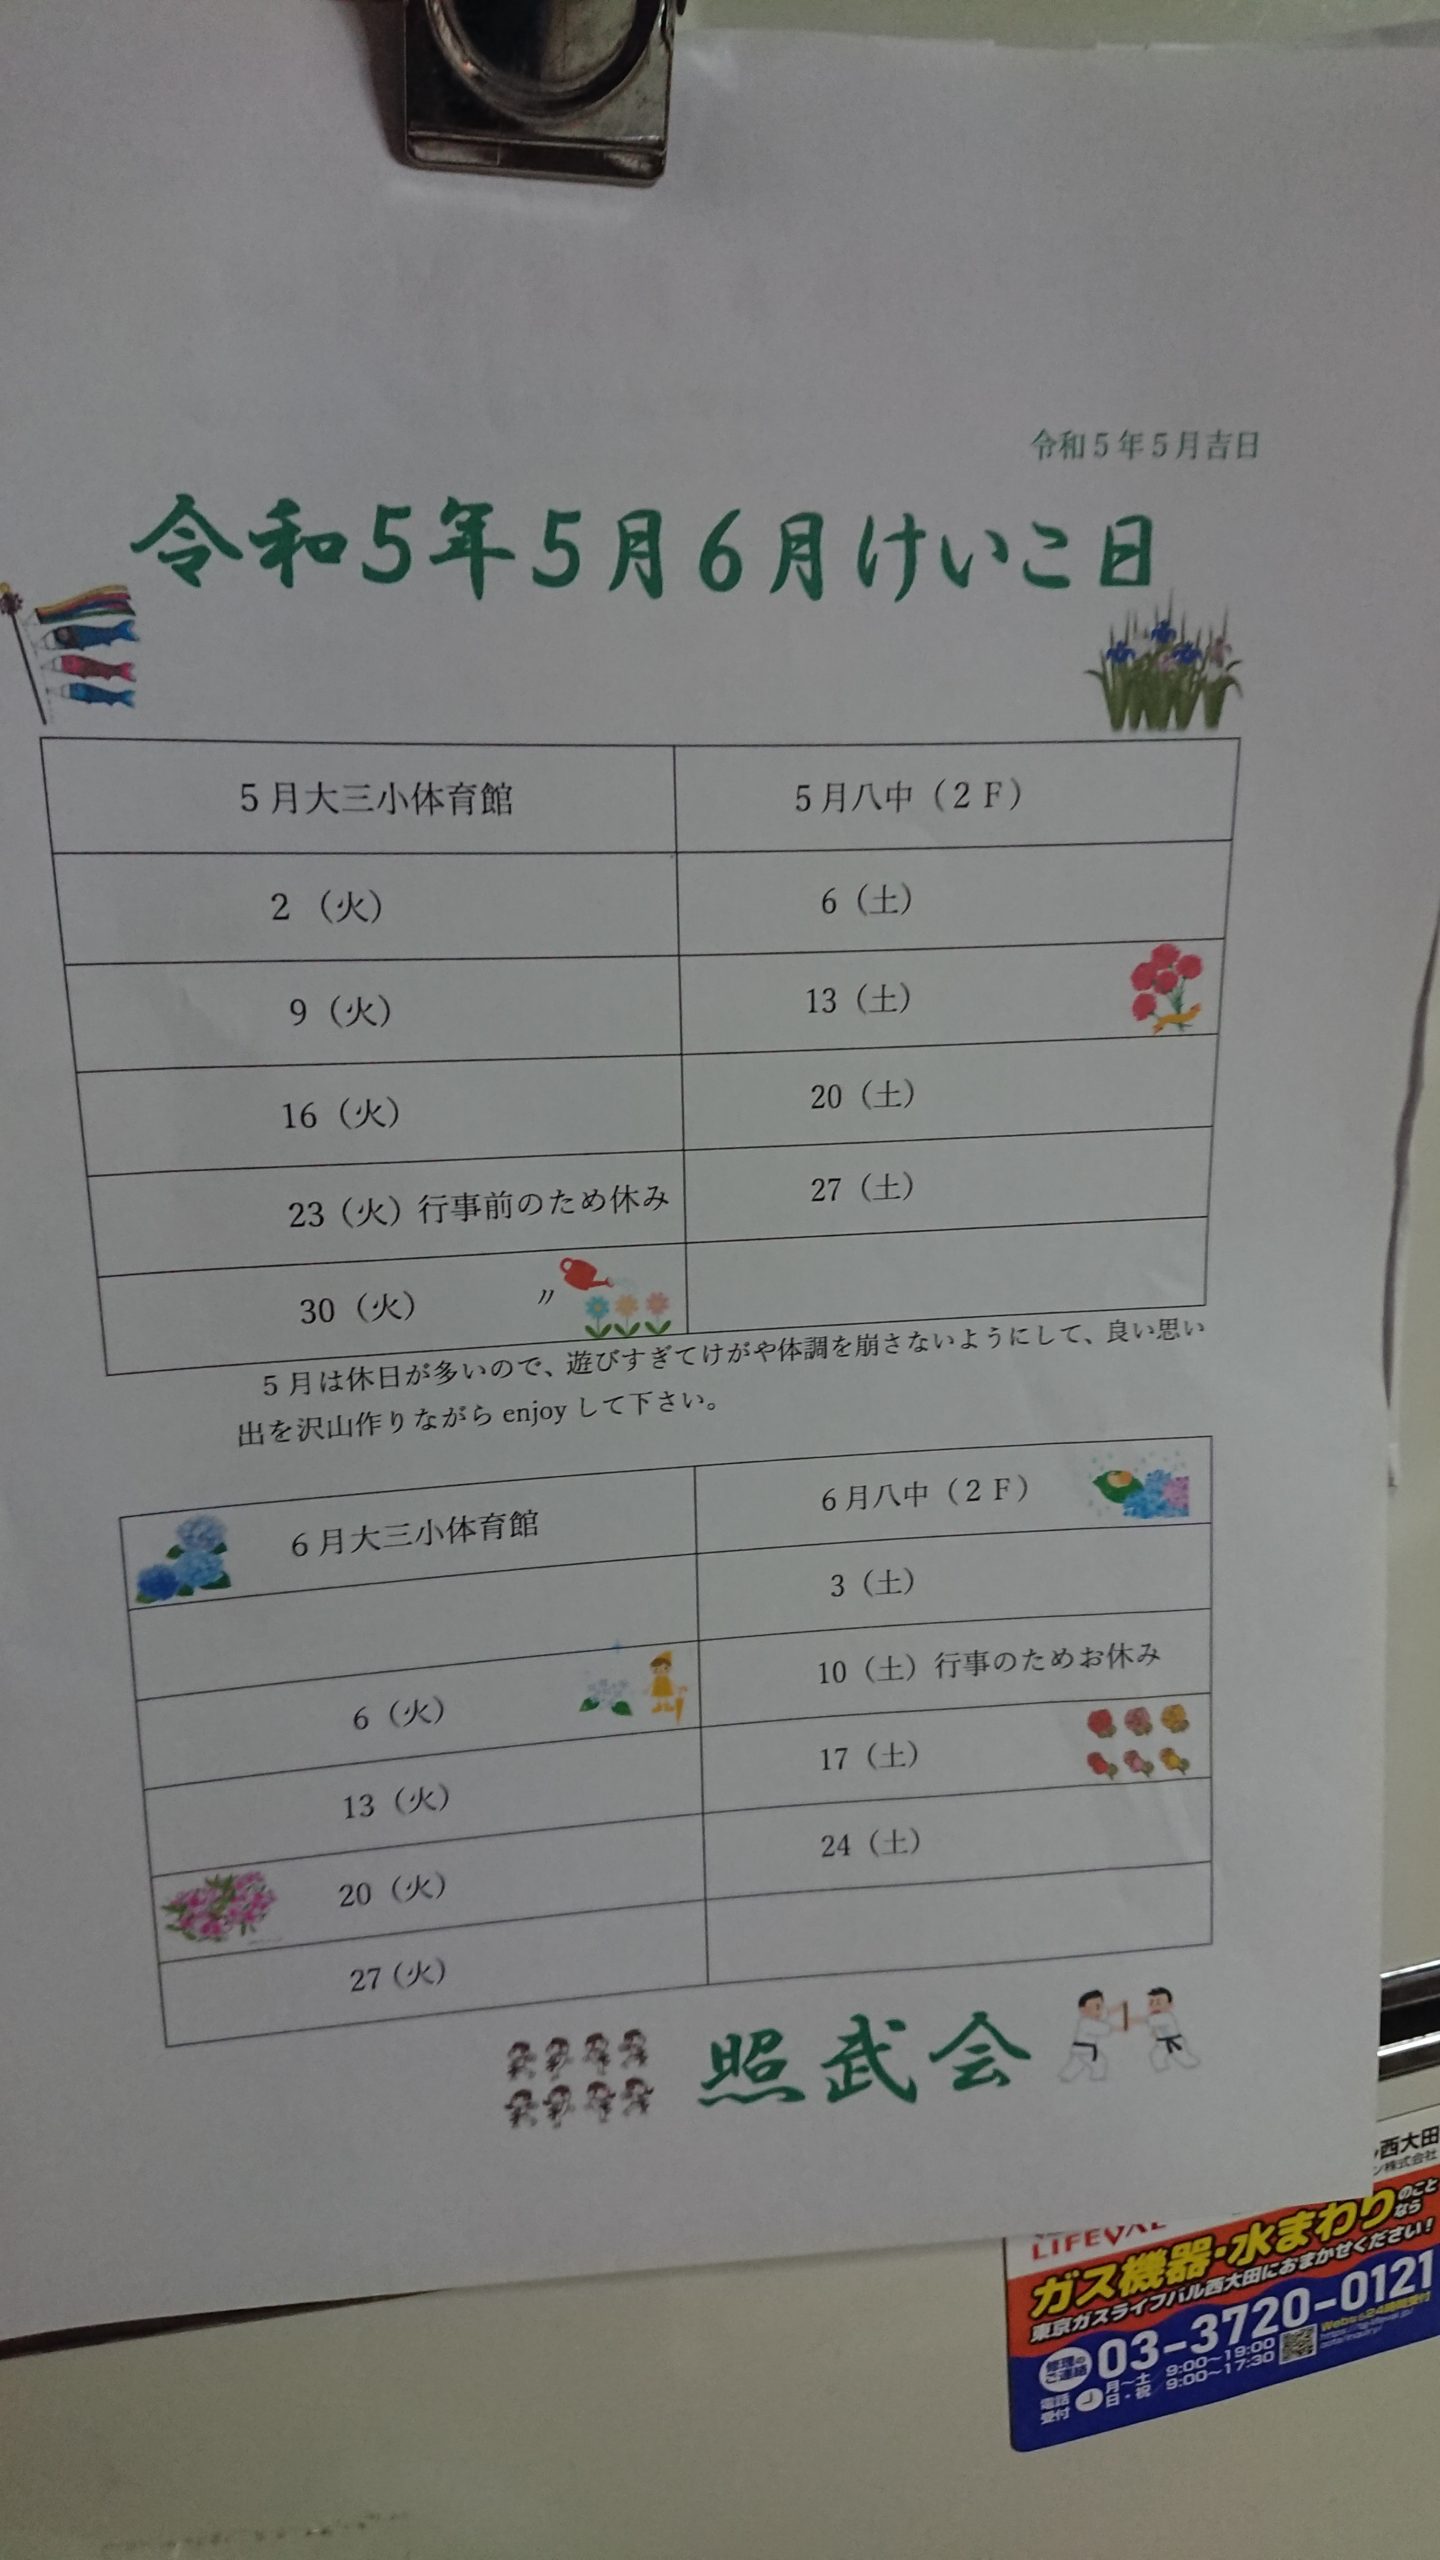 令和5年5月吉日
令和5年5月6月けいこ日
5月大三小体育館 5月八中（2F）
2（火） 6（土）
9（火） 13（土）
16（火） 20（土）
23（火）行事前のため休み 27（土）
30（火） 〃
5月は休日が多いので、遊びすぎてけがや体調を崩さないようにして、良い思い
出を沢山作りながら enjoy して下さい。
6月大三小体育館 6月八中（2F）
3（土）
6（火） 10（土）行事のためお休み
13（火） 17（土）
20（火） 24（土）
27（火）
照武会
西大田
ン株式会社
LIFEVAL
ガス機器・水まわりのことなら
東京ガスライフバル西大田におまかせください！
03-3720-0121
電話受付 月〜土 9:00〜19:00
日・祝 9:00〜17:30